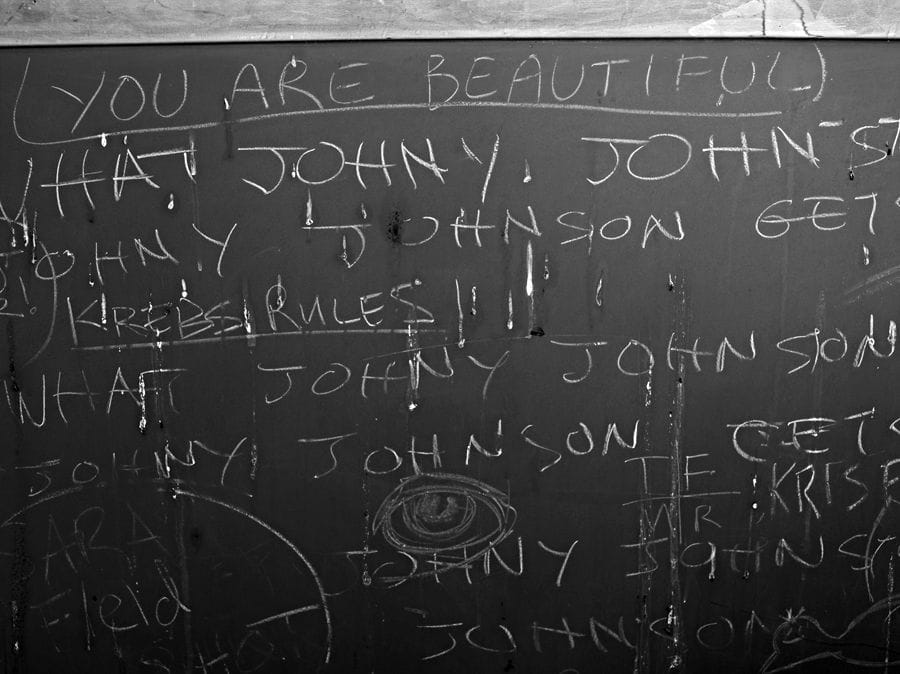 (YOU ARE BEAUTIFUL)
WHAT JOHNY JOHN'S
JOHNY JOHNSON GETS
KREBS RULES!!!
WHAT JOHNY JOHNSON
JOHNNY JOHNSON GETS
IF KRISE
MR.
ARA JOHNY JOHNS
Field
JOHNSON